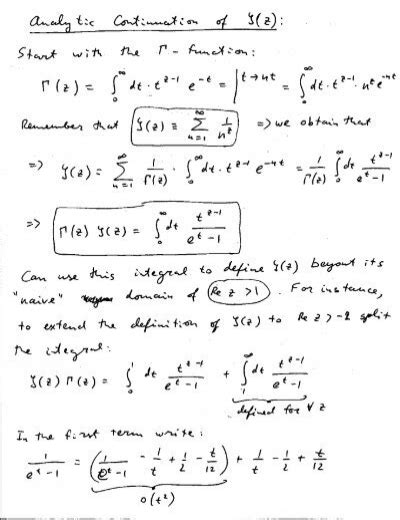 Analytic Continuation of ζ(z):
Start with the Γ-function:
Γ(z) = ∫₀^∞ dt · t^{z-1} e^{-t} = | t → nt = ∫₀^∞ dt · t^{z-1} · n^z e^{-nt}
Remember that ζ(z) ≡ ∑_{n=1}^∞ 1/n^z ⇒ we obtain that
⇒ ζ(z) = ∑_{n=1}^∞ 1/Γ(z) · ∫₀^∞ dt · t^{z-1} e^{-nt} = 1/Γ(z) ∫₀^∞ dt t^{z-1}/(e^t - 1)
⇒ Γ(z) ζ(z) = ∫₀^∞ dt t^{z-1}/(e^t - 1)
Can use this integral to define ζ(z) beyond its
"naive" domain of Re z > 1. For instance,
to extend the definition of ζ(z) to Re z > -2 split
the integral:
ζ(z) Γ(z) = ∫₀^1 dt t^{z-1}/(e^t - 1) + ∫₁^∞ dt t^{z-1}/(e^t - 1)
defined for ∀ z
In the first term write:
1/(e^t - 1) = (1/(e^t - 1) - 1/t + 1/2 - t/12) + 1/t - 1/2 + t/12
O(t²)